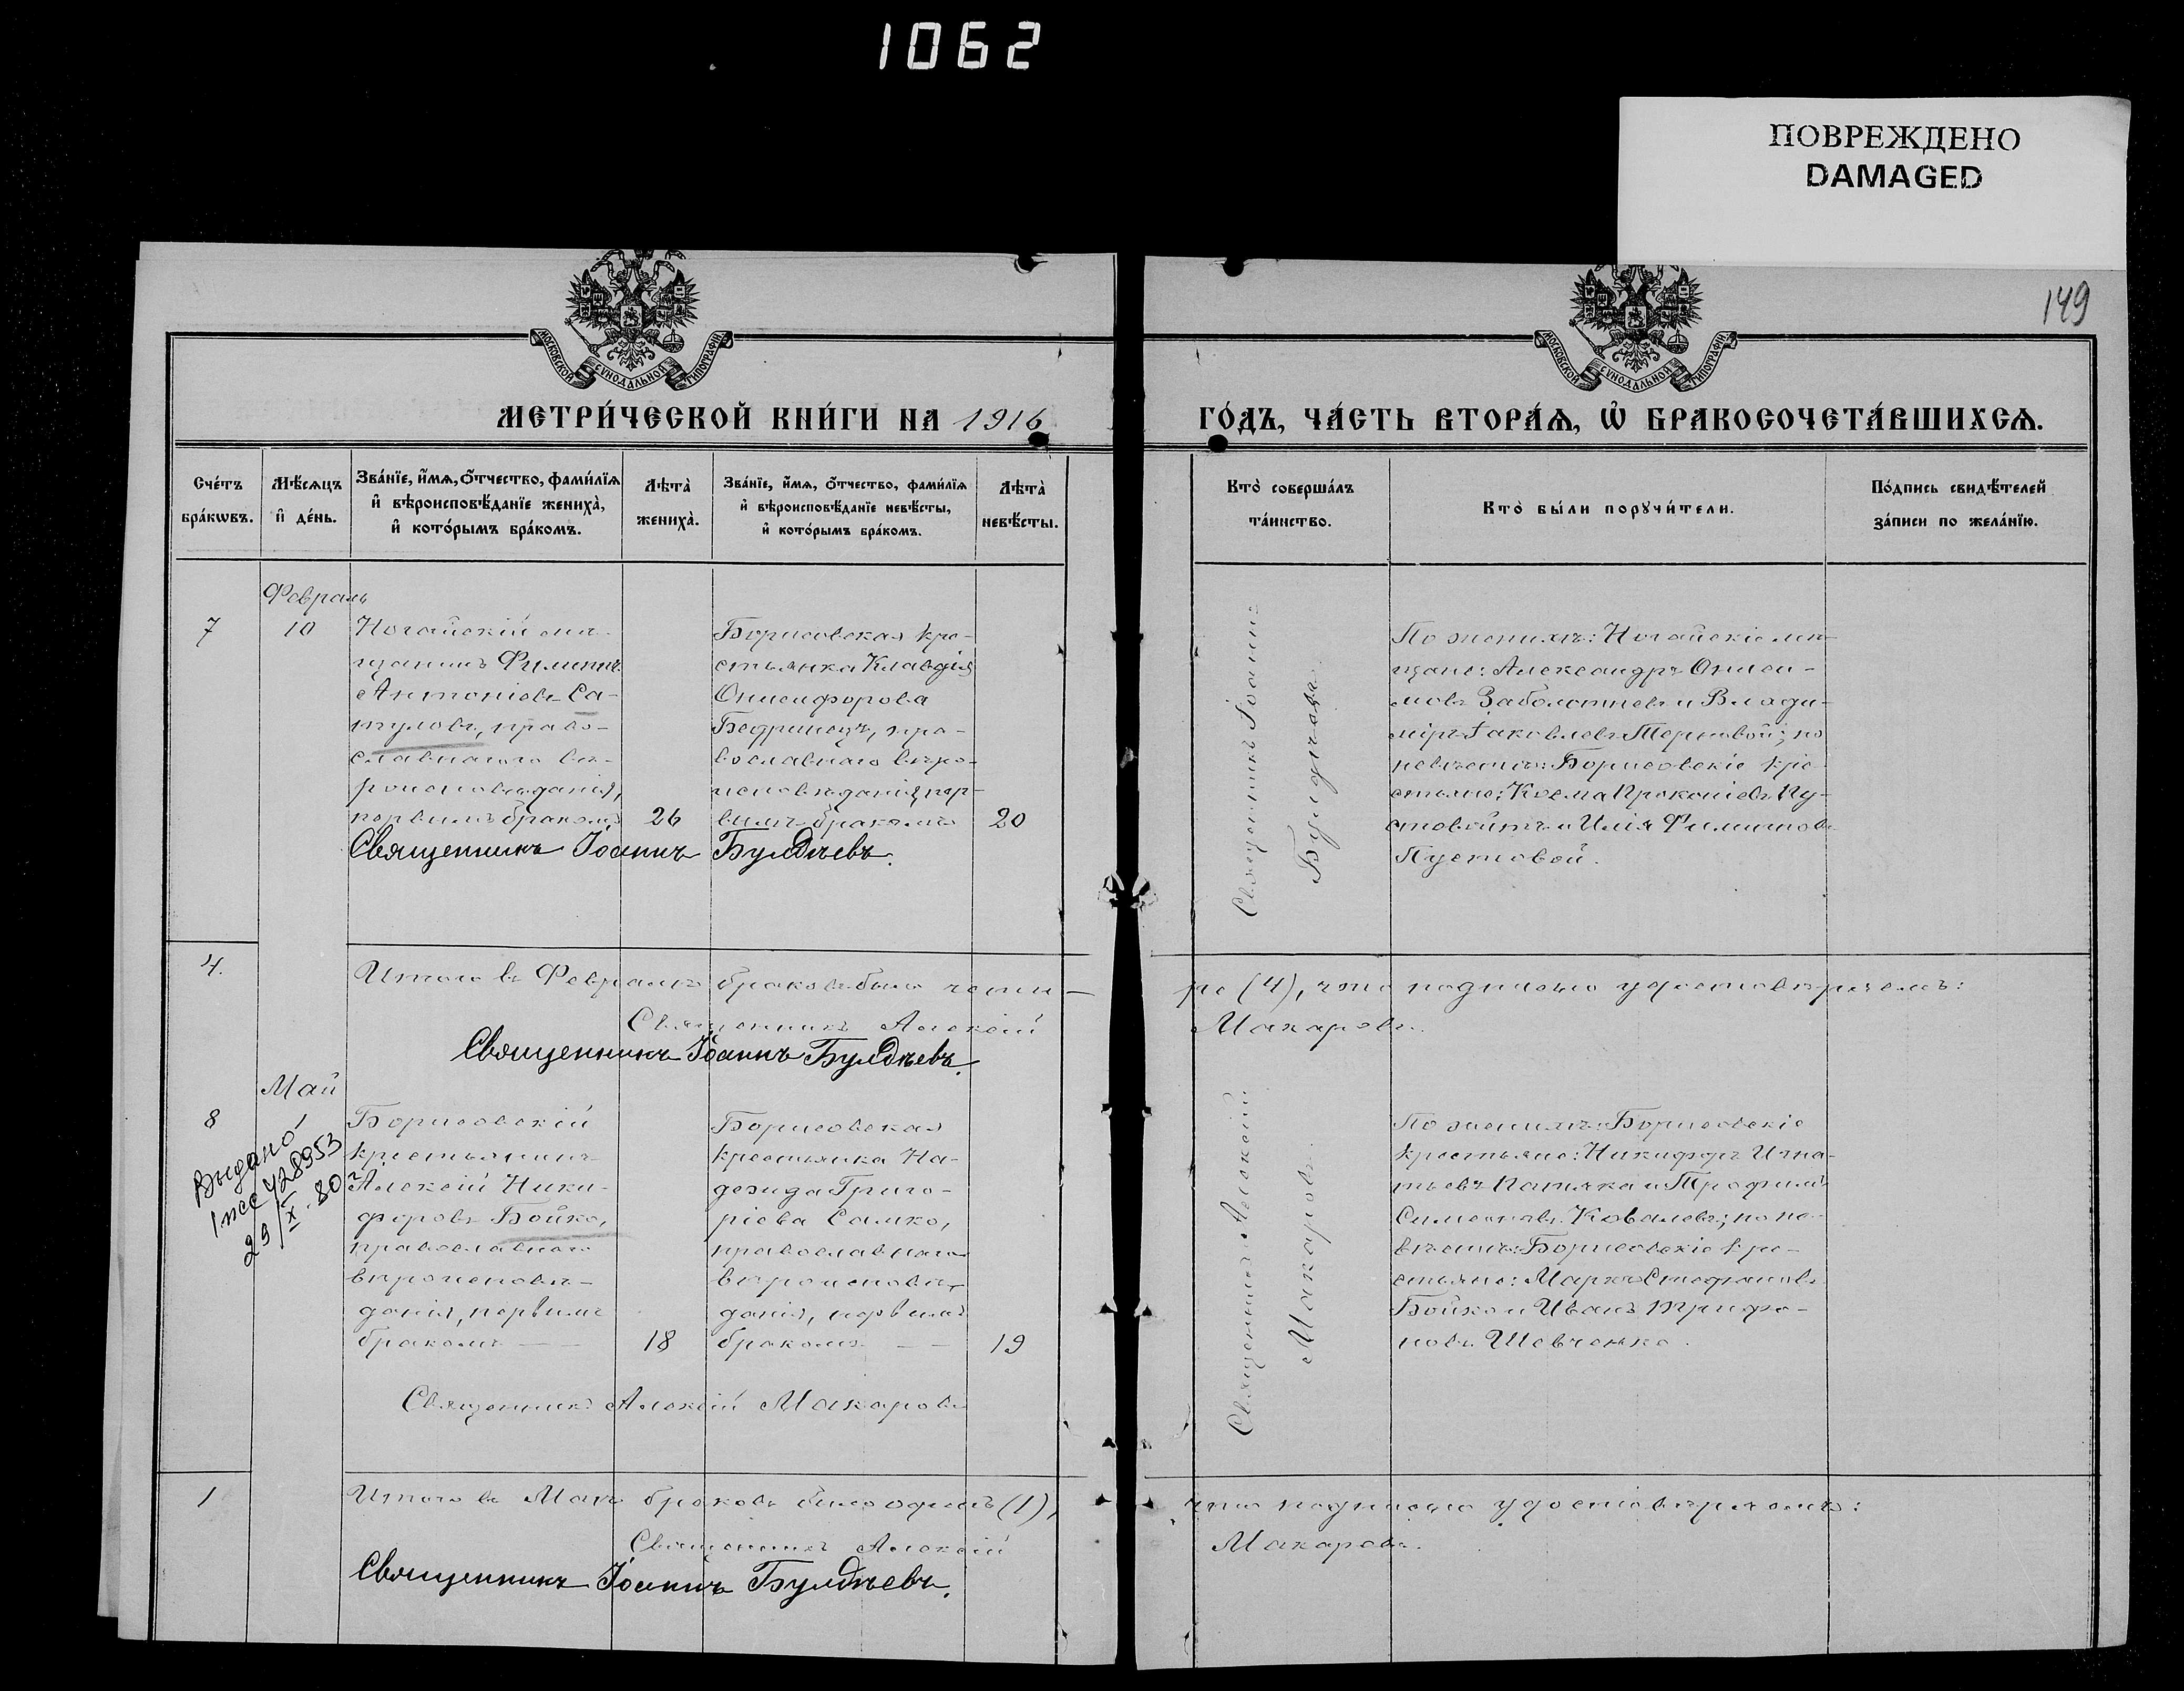 1062
ПОВРЕЖДЕНО
DAMAGED
149
МОСКОВСКОЙ СѴНОДАЛЬНОЙ ТИПОГРАФІИ.
МОСКОВСКОЙ СѴНОДАЛЬНОЙ ТИПОГРАФІИ.
МЕТРИ́ЧЕСКОЙ КНИ́ГИ НА 1916
ГО́ДЪ, ЧА́СТЬ ВТОРА́Ѧ, Ѽ БРАКОСОЧЕТА́ВШИХСѦ.
Сче́тъ
бра́кѡвъ.
Мѣ́сѧцъ
и҆ де́нь.
Зва́нїе, и҆́мѧ, ѻ҆́тчество, фами́лїѧ
и҆ вѣроисповѣ́данїе жениха̀,
и҆ кото́рымъ бра́комъ.
Лѣта̀
жениха̀.
Зва́нїе, и҆́мѧ, ѻ҆́тчество, фами́лїѧ
и҆ вѣроисповѣ́данїе невѣ́сты,
и҆ кото́рымъ бра́комъ.
Лѣта̀
невѣ́сты.
Кто̀ соверша́лъ
та́инство.
Кто̀ бы́ли порꙋчи́тели.
По́дпись свидѣ́телей
за́писи по жела́нїю.
Февраль
7
10
Ногайскій мѣ-
щанинъ Филиппъ
Антоніевъ Са-
туловъ, право-
славнаго вѣ-
роисповѣданія,
первымъ бракомъ
26
Борисовская кре-
стьянка Клавдія
Онисифорова
Бедринецъ, пра-
вославнаго вѣро-
исповѣданія, пер-
вымъ бракомъ
20
Священникъ Іоаннъ Булдѣевъ.
Священникъ Іоаннъ
Булдѣевъ.
По женихѣ: Ногайскіе мѣ-
щане: АлександръОниси-
мовъ Заболотневъ и Влади-
міръ Іаковлевъ Терновой; по
невѣстѣ: Борисовскіе кре-
стьяне: Косма Прокопіевъ Пу-
стовойтъ и Илія Филипповъ
Пустовой.
4.
Итого въ Февралѣ браковъ было четы-
ре (4), что подписью удостовѣряемъ:
Священникъ Алексій
Макаровъ.
Священникъ Іоаннъ Булдѣевъ.
Май
8
1
Выдано
428953
29/X. 80 г
Борисовскій
крестьянинъ
Алексій Ники-
форовъ Бойко,
православнаго
вѣроисповѣ-
данія, первымъ
бракомъ — —
18
Борисовская
крестьянка На-
дежда Григо-
ріева Самко,
православнаго
вѣроисповѣ-
данія, первымъ
бракомъ — —
19
Священникъ Алексій Макаровъ
Священникъ Алексій
Макаровъ.
По женихѣ: Борисовскіе
крестьяне: Никифоръ Игна-
тьевъ Патяка и Трофимъ
Симеоновъ Ковалевъ; по не-
вѣстѣ: Борисовскіе кре-
стьяне: Маркъ Стефановъ
Бойко и Иванъ Трифо-
новъ Шевченко.
1
Итого въ Маѣ браковъ было одинъ (1),
что подписью удостовѣряемъ:
Священникъ Алексій
Макаровъ.
Священникъ Іоаннъ Булдѣевъ.